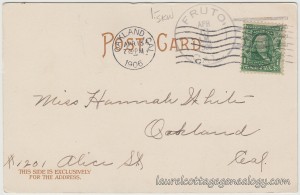 POST CARD
OAKLAND, CAL.
1906
FRUTO
APR
C
Miss Hannah White
Oakland
Cal.
#1201 Alice St
THIS SIDE IS EXCLUSIVELY
FOR THE ADDRESS.
laurelcottagegenealogy.com